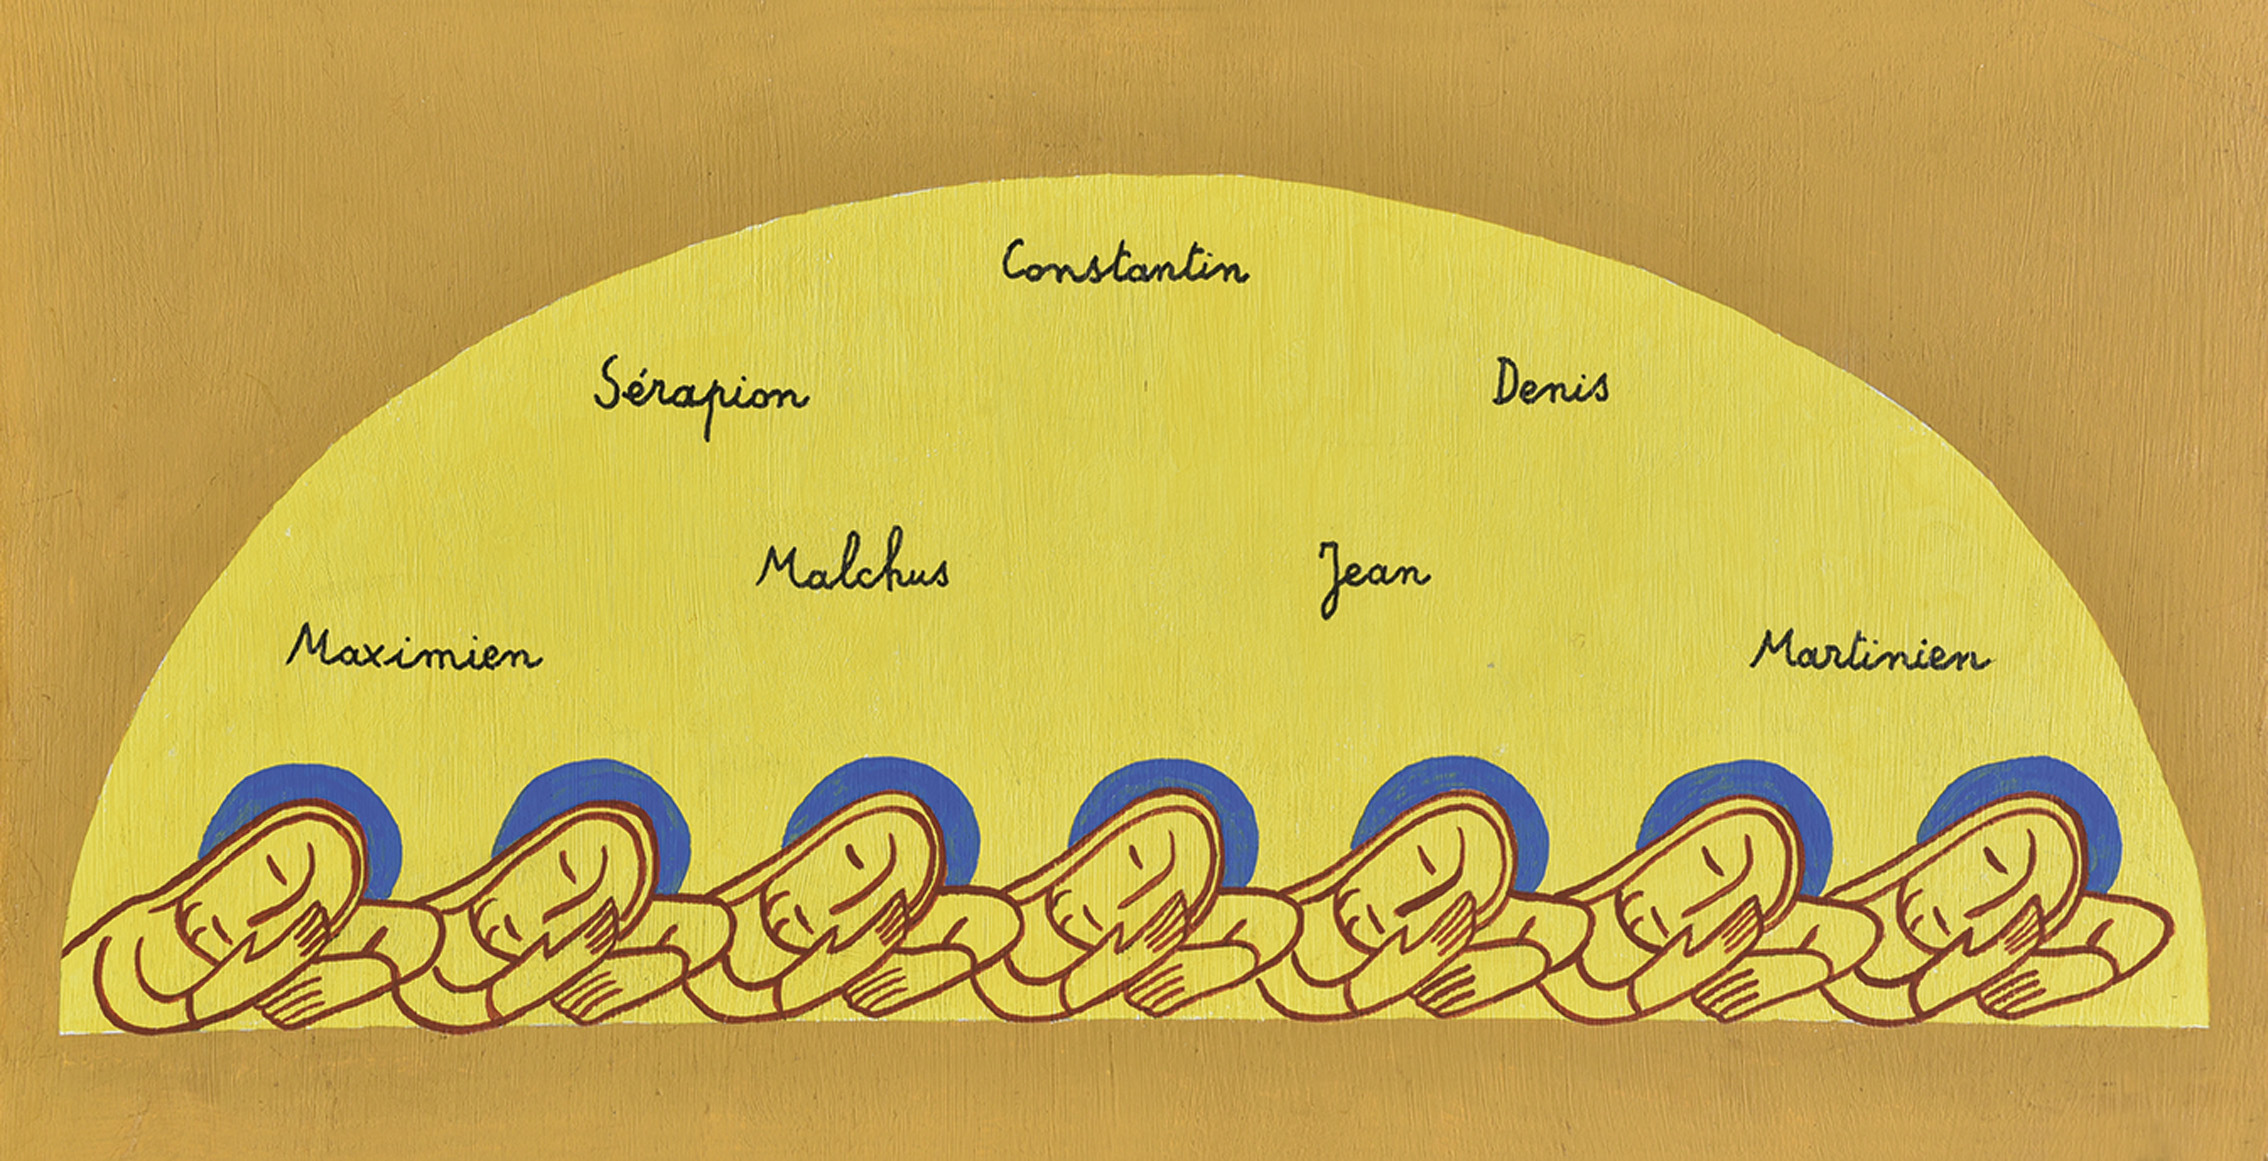 Constantin
Sérapion
Denis
Malchus
Jean
Maximien
Martinien